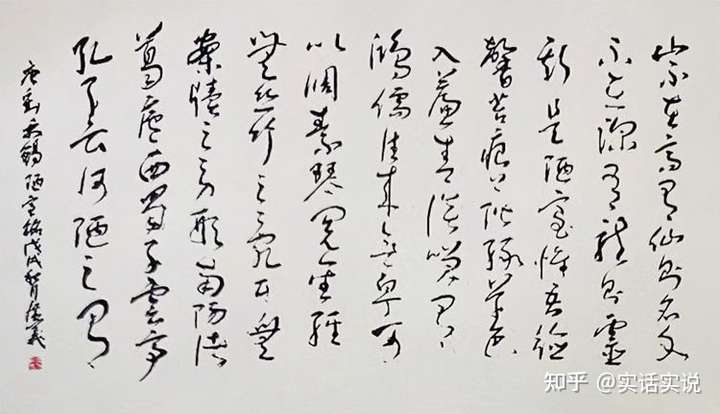 山不在高有仙則名水
不在深有龍則靈
斯是陋室惟吾德
馨苔痕上階綠草色
入簾青談笑有
鴻儒往來無白丁可
以調素琴閱金經
無絲竹之亂耳無
案牘之勞形南陽諸
葛廬西蜀子雲亭
孔子云何陋之有
唐劉禹錫陋室銘戊戌秋月
知乎 @实话实说